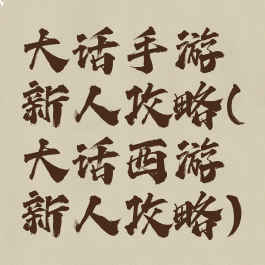 大话手游
新人攻略(
大话西游
新人攻略)